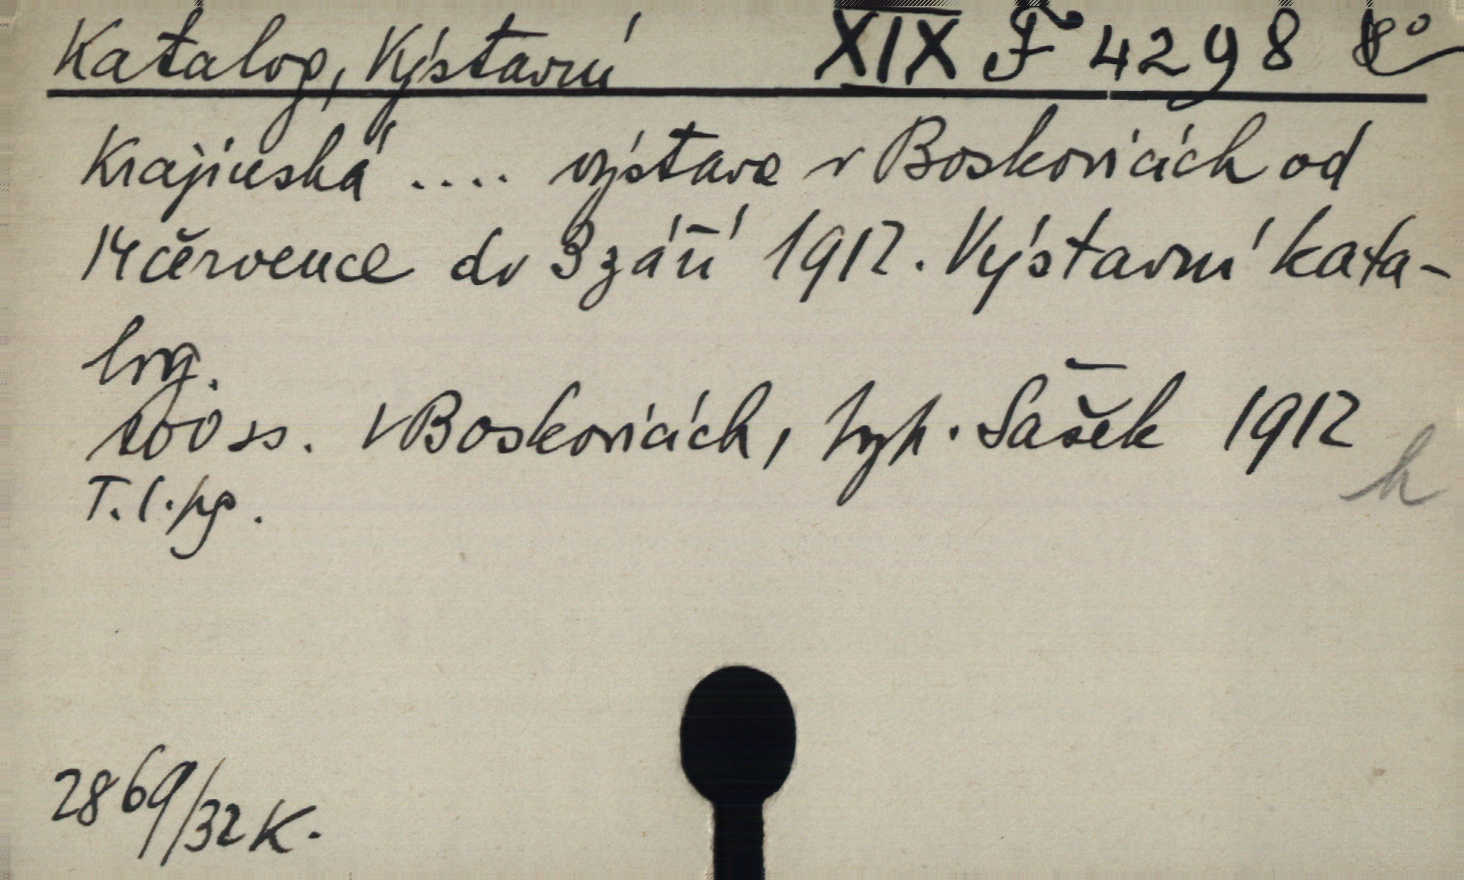 Katalog, Výstavní XIX F 4298 8°
Krajinská .... výstava v Boskovicích od
14 července do 3 září 1912. Výstavní kata-
log.
100 ss. V Boskovicích, typ. Sašek 1912
T. l. pg.
h
2869/32 K.